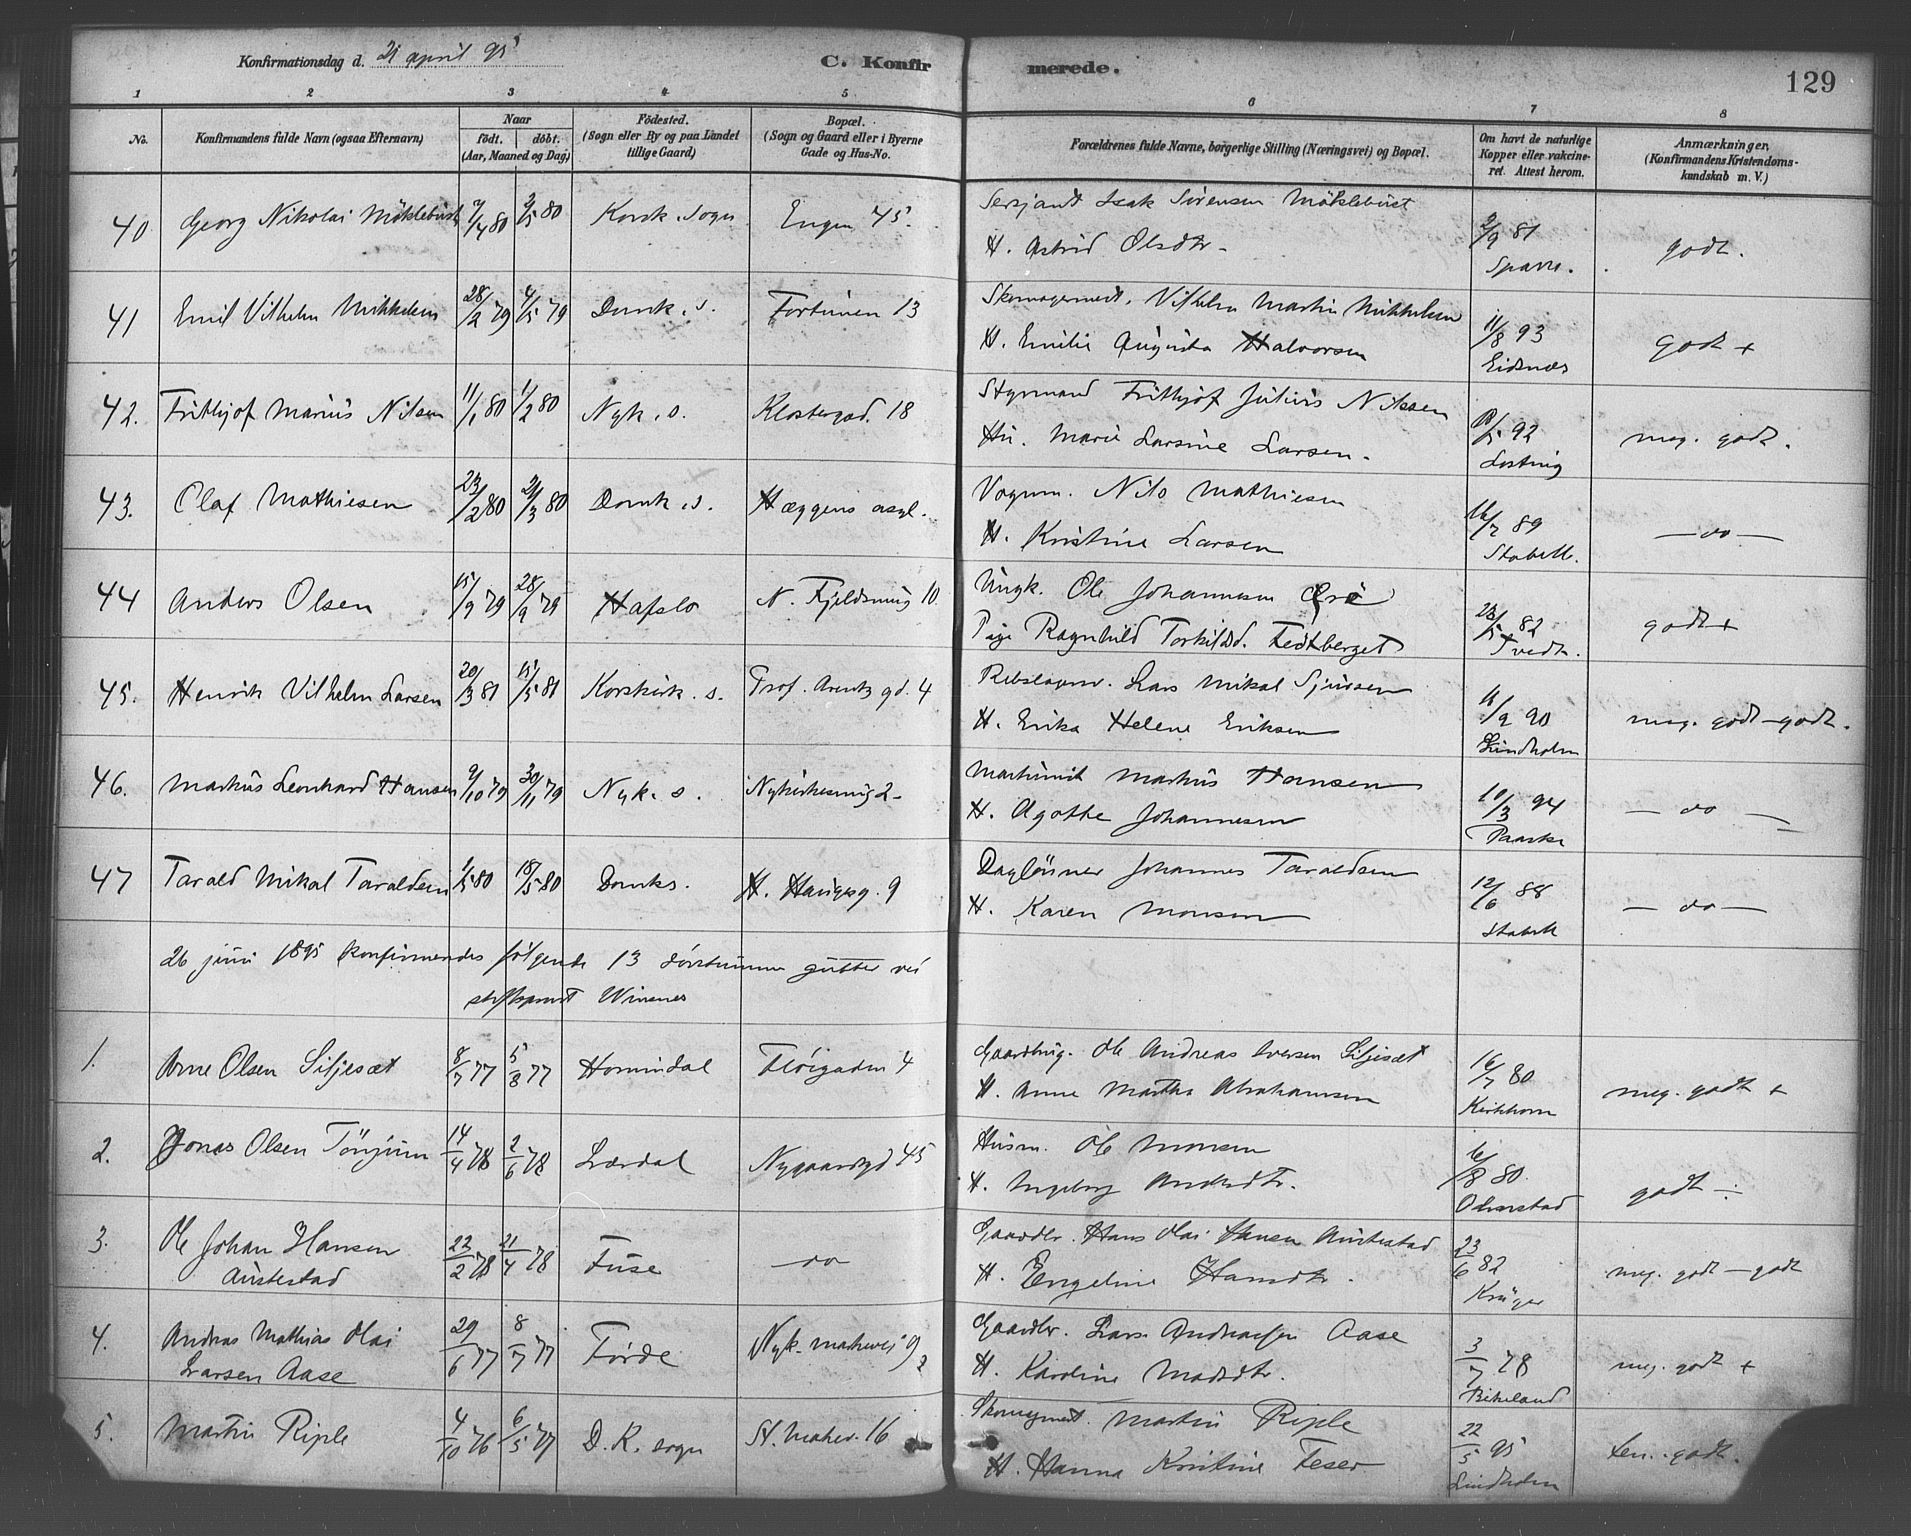 Konfirmationsdag d. 21 april 95
C. Konfirmerede.
129
1 2 3 4 5 6 7 8
No. Konfirmandens fulde Navn (ogsaa Efternavn) Naar födt. döbt. (Aar, Maaned og Dag) Födested. (Sogn eller By og paa Landet tillige Gaard) Bopæl. (Sogn og Gaard eller i Byerne Gade og Hus-No. Forældrenes fulde Navne, borgerlige Stilling (Næringsvei) og Bopæl. Om havt de naturlige Kopper eller vakcineret. Attest herom. Anmærkninger, (Konfirmandens Kristendomskundskab m. V.)
40 Georg Nikolai Möklebust /4 80 2/5 80 Korsk. sogn Engen 45. Serjant Isak Sörensen Möklebust 81
H. Astrid Olsdtr. Sparre. godt.
41 Emil Vilhelm Mikkelsen 28/2 79 4/5 79 Domk. s. Fortunen 13 Skomagermest. Vilhelm Martin Mikkelsen 11/8 93
H. Emilie Augusta Halvorsen Eidsnes godt +
42. Frithjof Marius Nilsen 11/1 80 1/2 80 Nyk. s. Klostergad. 18 Styrmand Frithjof Julius Nilssen 92
Hu. Marie Larsine Larsen. meg. godt.
43. Olaf Mathiesen 23/2 80 21/3 80 Domk. s. Hæggens asyl. Vognm. Nils Mathiesen 89
H. Kristine Larsen Stabell. — do —
44 Anders Olsen 15/9 79 28/9 79 Hafslo N. Fjeldsmug 10 Ungk. Ole Johannesen 82
Pige Ragnhild Torkildsd. Fedtberget Tvedt. godt +
45. Henrik Vilhelm Larsen 20/3 81 15/5 81 Korskirk. s. Prof. Arentz gd. 4 Rebslagersv. Lars Mikal Sjursen /9 90
H. Erika Helene Eriksen Lindholm meg. godt — godt.
46. Markus Leonhard Hansen 9/10 79 30/11 79 Nyk. s. Nykirkesmug 2 Markus Hansen 10/3 94
H. Agathe Johannesen Paaske — do —
47 Tarald Mikal Taraldsen 1/5 80 18/5 80 Domks. H. Haugesg. 9 Daglönner Johannes Taraldsen 12/6 88
H. Karen Monsen Stabell — do —
26 juni 1895 konfirmerdes følgende 13 døvstumme gutter ved
stiftsprovst Wisnes
1. Arne Olsen Siljesæt 8/7 77 5/8 77 Hornindal Fløigaden 4 Gaardbrug. Ole Andreas Iversen Siljesæt 16/7 80
H. Anne Martha Abrahamsen Kirkhorn meg. godt +
2. Jonas Olsen Tönjum 14/4 78 2/6 78 Lærdal Nygaardsgd 45 Husm. Ole Monsen 6/8 80
H. Ingeborg Andersdtr. Olmstad godt
3. Ole Johan Hansen
Austestad 22/2 78 21/4 78 Fuse do Gaardbr. Hans Olai Hansen Austestad 23/6 82
H. Engeline Hansdtr. Krüger meg. godt — godt
4. Andreas Mathias Olai
Larsen Aase 29/6 77 8/7 77 Förde Nyk. markvei 92 Gaardbr. Lars Andreassen Aase 3/7 78
H. Karoline Madsdtr. Birkeland meg. godt +
5. Martin Riple 4/10 76 6/5 77 D. K. sogn St. Markev. 16 Skomgmest. Martin Riple 22/5 95
H. Hanna Kristine Feser Lindholm tem. godt.